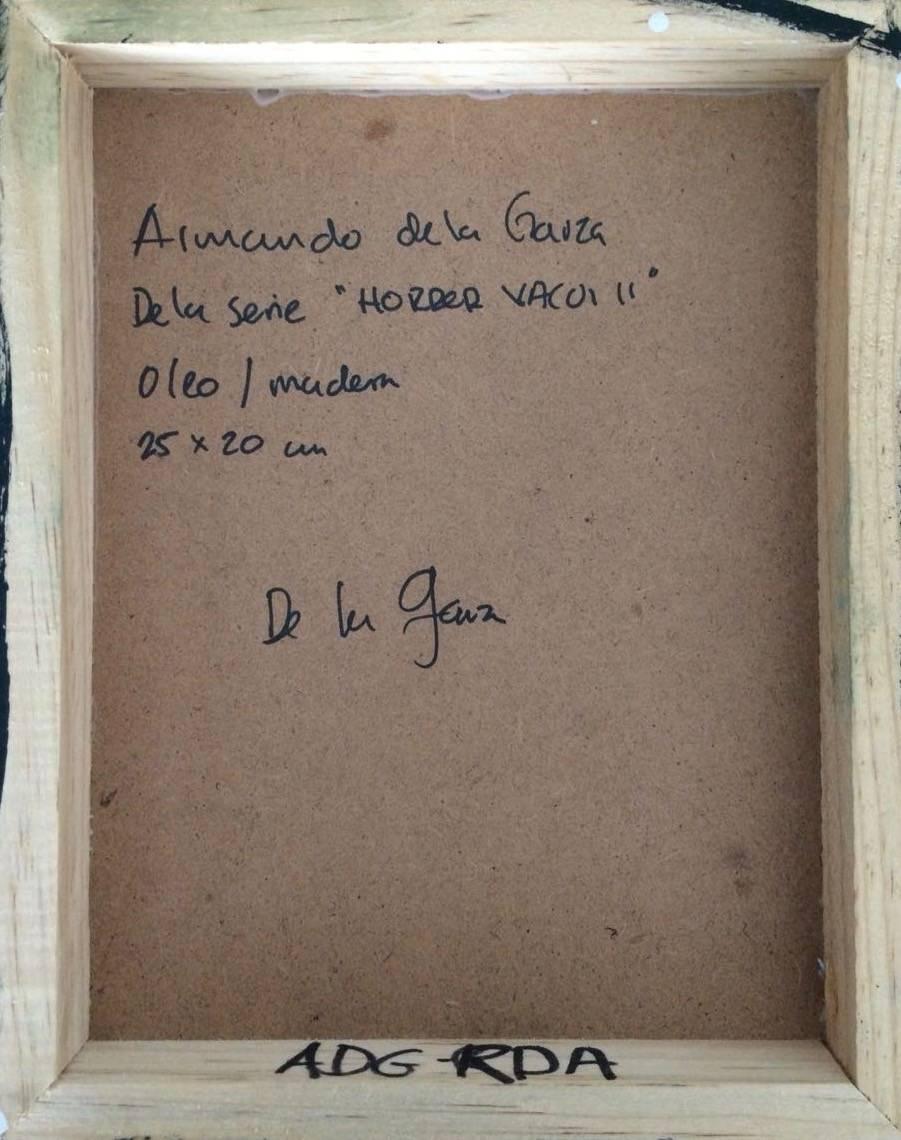 Armando de la Garza
De la serie "HORROR VACUI II"
Oleo / madera
25 x 20 cm
De la Garza
ADG-RDA